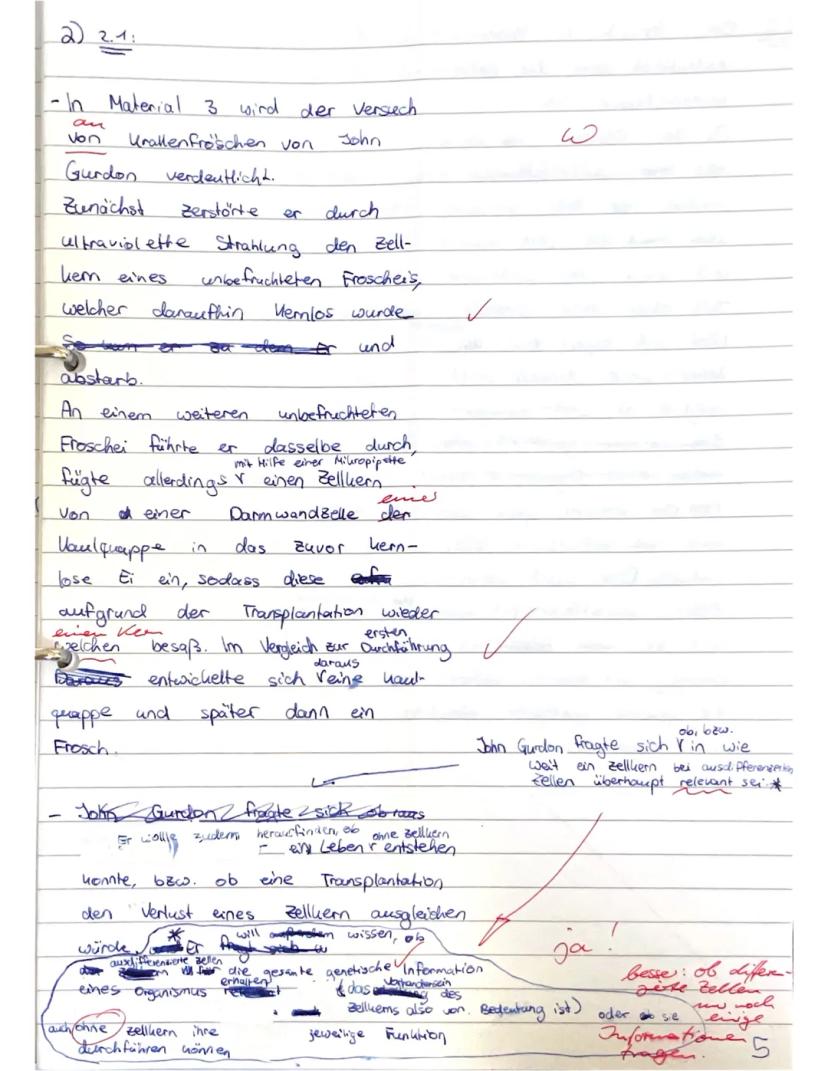 2) 2.1:
- In Material 3 wird der Versuch
an
von Krallenfröschen von John
W
Gurdon verdeutlicht.
Zunächst zerstörte er durch
ultraviolette Strahlung den Zell-
kern eines unbefruchteten Froscheis,
welcher daraufhin kernlos wurde
So kam er zu dem Er und
abstarb.
An einem weiteren unbefruchteten
Froschei führte er dasselbe durch,
mit Hilfe einer Mikropipette
fügte allerdings einen Zellkern
einer
von einer Darmwandzelle der
Kaulquappe in das zuvor kern-
lose Ei ein, sodass diese
aufgrund der Transplantation wieder
einen Kern
ersten
welchen besaß. Im Vergleich zur Durchführung
daraus
Daraus entwickelte sich eine Kaul-
quappe und später dann ein
Frosch.
ob, bzw.
John Gurdon fragte sich in wie
weit ein Zellkern bei ausdifferenzierten
Zellen überhaupt relevant sei. *
- John Gurdon fragte sich ob
Er wollte zudem herausfinden, ob ohne Zellkern
- ein Leben entstehen
konnte, bzw. ob eine Transplantation
den Verlust eines Zellkern ausgleichen
würde.
* Er will wissen, ob
ja!
ausdifferenzierte Zellen
die gesamte genetische Information
erhalten
eines Organismus (das Vorhandensein des
Zellkerns also von Bedeutung ist) oder ob sie
auch ohne Zellkern ihre jeweilige Funktion
durchführen können
besser: ob differen-
zierte Zellen
nur noch
einige
Informationen
tragen.
5